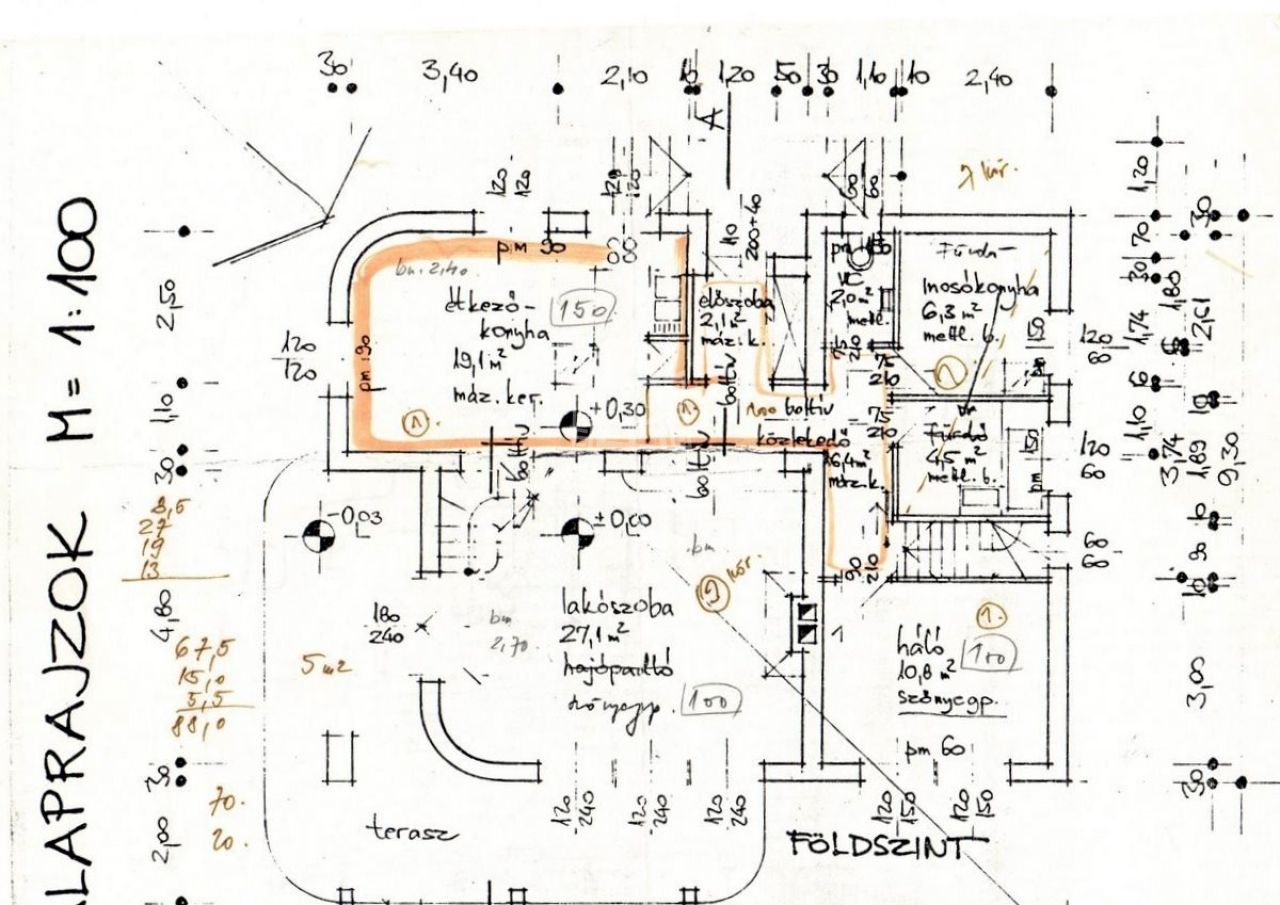 ALAPRAJZOK M = 1:100
30
3,40
2,10
10
1,20
50
30
1,10
10
2,40
A
120
120
60
60
10
200+40
pm 90
bm. 2,40
étkező-
konyha
19,1 m²
máz. ker.
150
pm. 90
1.
+0,30
előszoba
2,1 m²
máz. k.
boltív
1.
100 boltív
közlekedő
6,4 m²
máz. k.
WC
2,0 m²
metl.
75
210
75
210
75
210
Fürdő-
mosókonyha
6,3 m²
metl. b.
150
fürdő
4,5 m²
metl. b.
150
pm
boltív
boltív
-0,03
±0,00
bm
lakószoba
27,1 m²
hajópadló
100
180
240
bm
2,70
5 m2
90
210
1
1.
háló
10,8 m²
100
szőnyegp.
pm 60
120
240
120
240
120
240
120
150
120
150
terasz
FÖLDSZINT
2,50
1,10
30
4,80
30
2,00
120
120
8,5
27
19
13
67,5
15,0
5,5
88,0
70.
20.
120
60
120
60
60
60
1,20
70
30
1,80
1,74
2,61
6
6
10
1,10
3,74
1,89
9,30
10
90
10
3,00
30
30